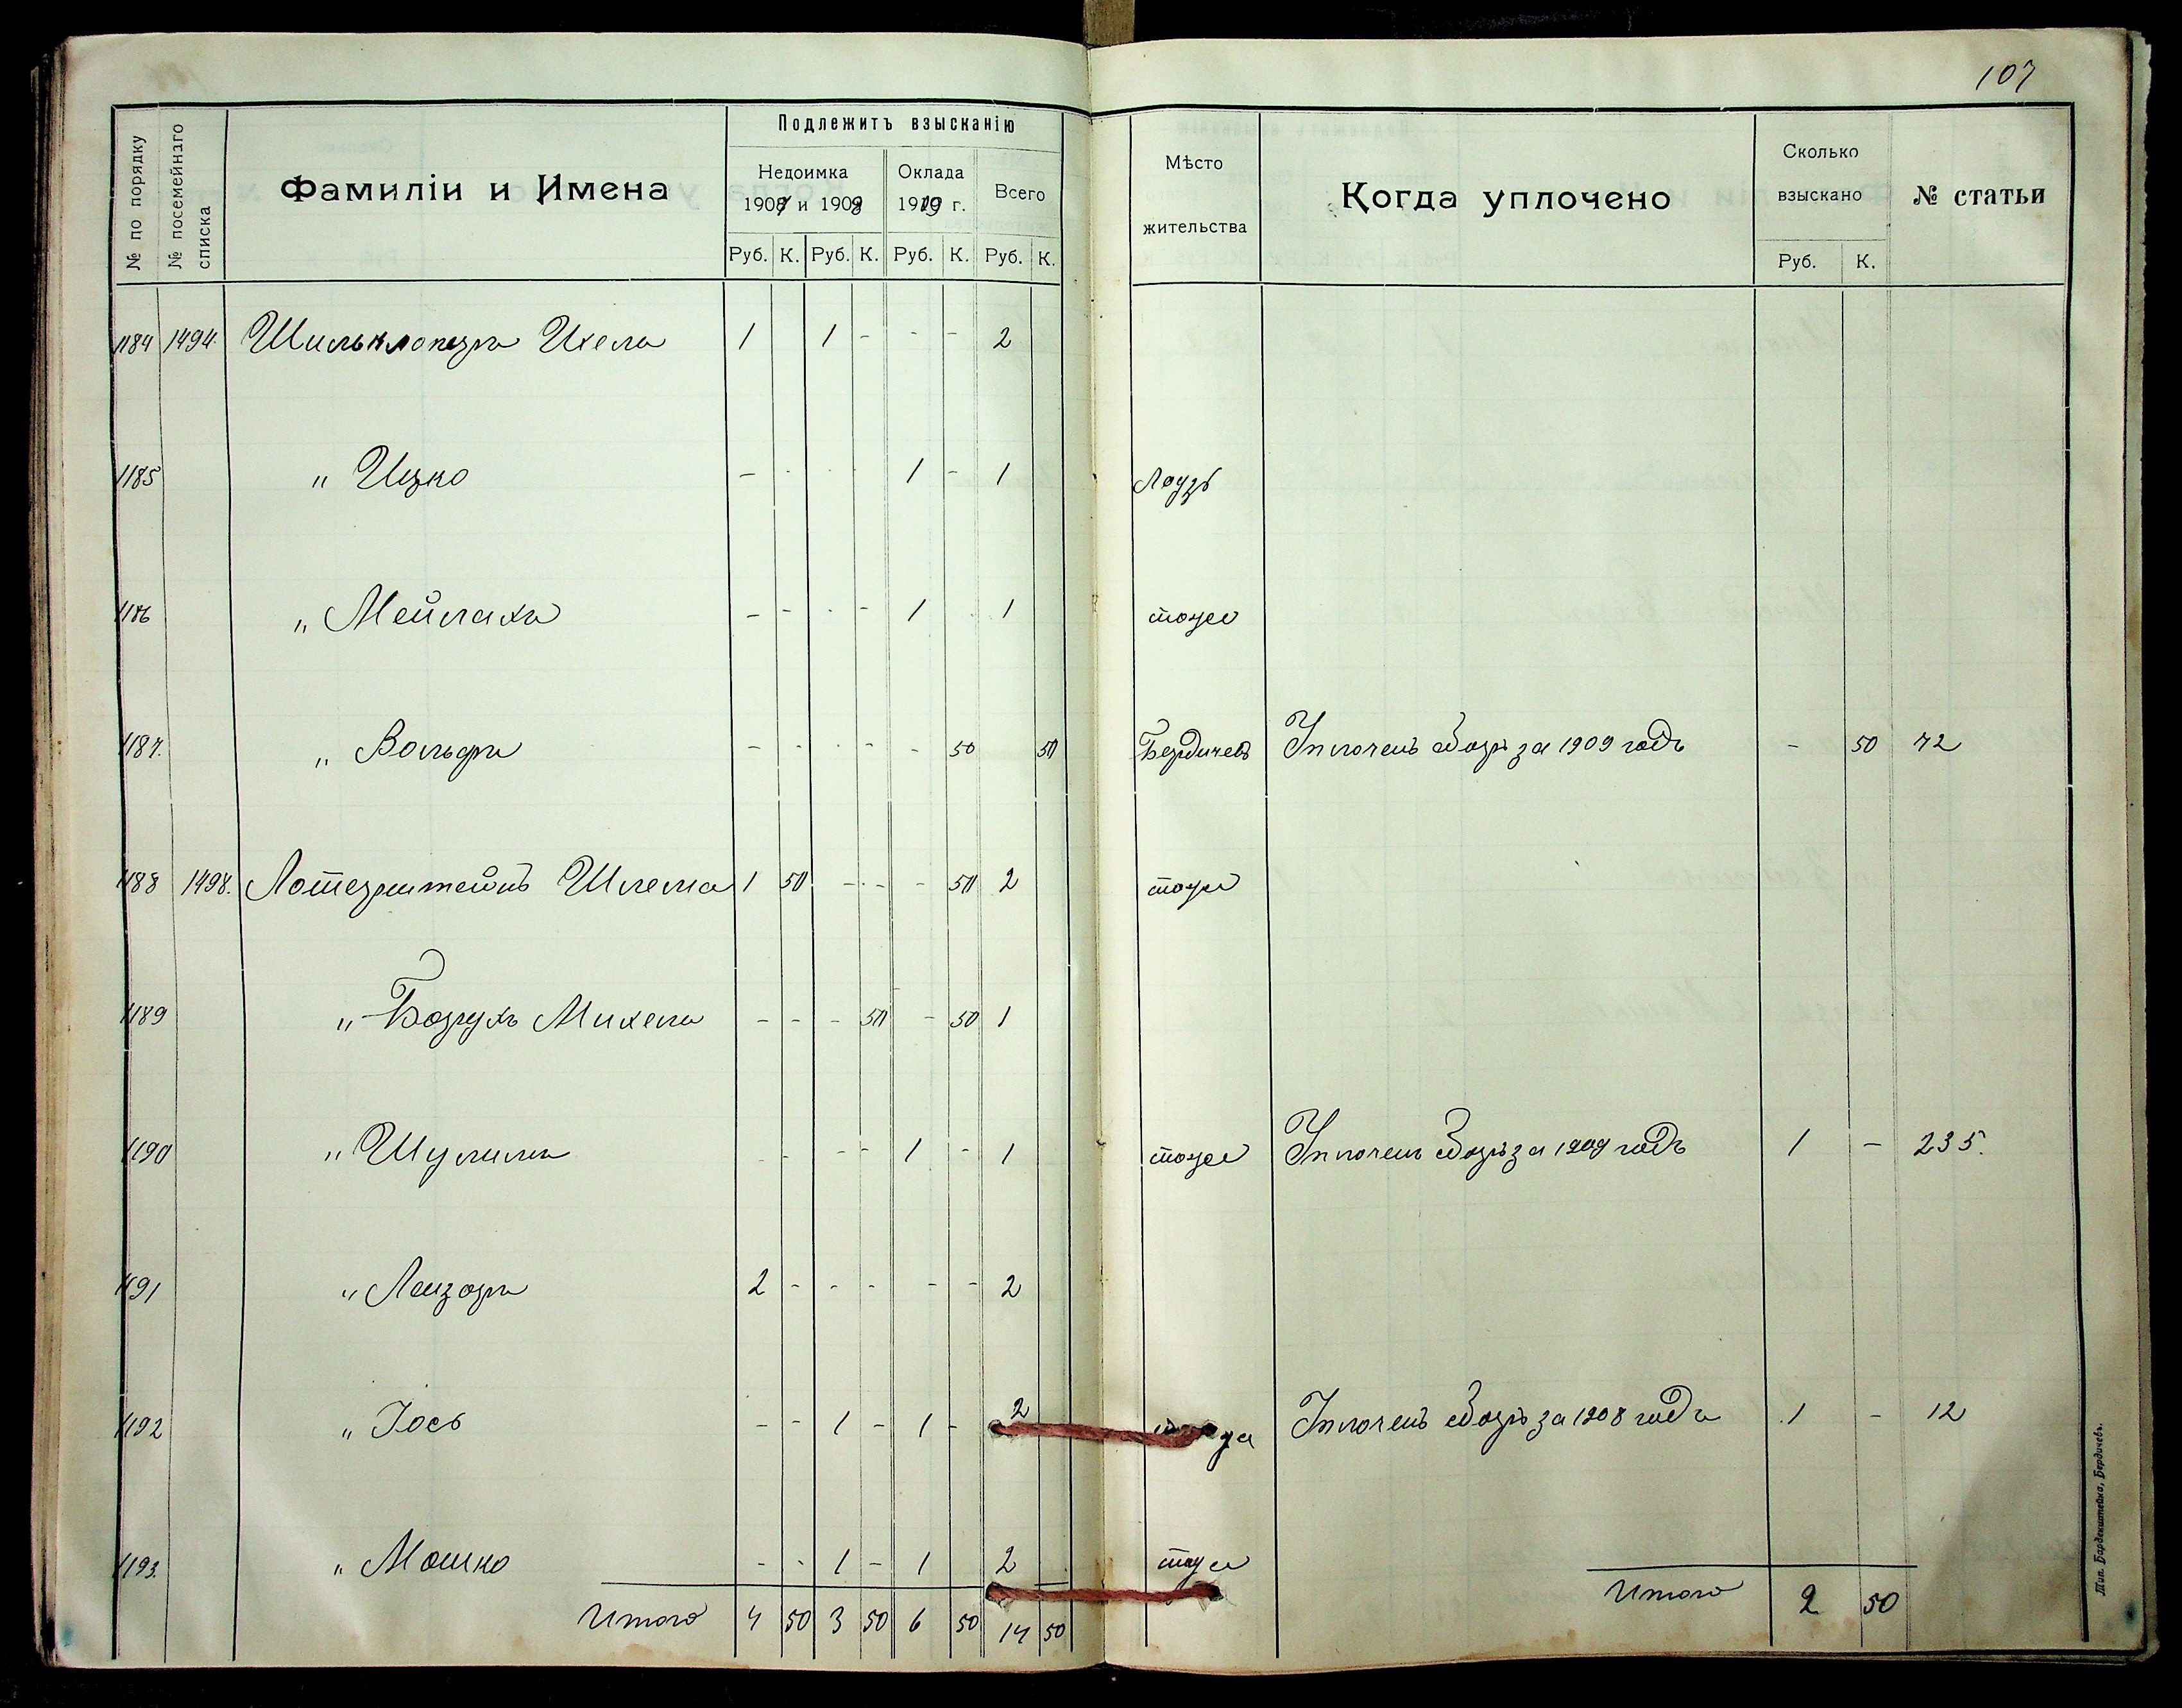 107
№ по порядку
№ посемейнаго списка
Фамиліи и Имена
Подлежитъ взысканію
Недоимка 1907 и 1908
Оклада 1909 г.
Всего
Руб. К. Руб. К. Руб. К. Руб. К.
Мѣсто жительства
Когда уплочено
Сколько взыскано
Руб. К.
№ статьи
1184 1494 Ихель 1 1 - - - 2
1185 " Ицко - 1 - 1
1186 " Мейлахъ - - - - 1 1 тоже
1187. " Вольфъ - - - - - 50 50 Бердичевъ Уплоченъ сборъ за 1909 годъ - 50 72
1188 1498. Шлема 1 50 - - - 50 2 тоже
1189 " Борухъ Михель - - - 50 - 50 1
1190 " Шулимъ - - - - 1 - 1 тоже Уплоченъ сборъ за 1909 годъ 1 - 235.
1191 " Лейзоръ 2 - - - - - 2
1192 " Іось - - 1 - 1 - 2 Уплоченъ сборъ за 1908 годъ 1 - 12
1193. " Мошко - - 1 - 1 2 тоже
Итого 4 50 3 50 6 50 14 50
Итого 2 50
Тип. Барденштейна, Бердичевъ.